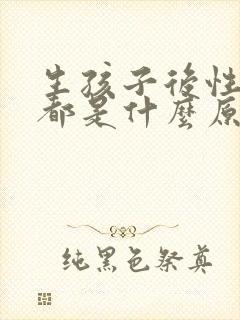 生孩子後性
都是什麼原
纯黑色祭奠